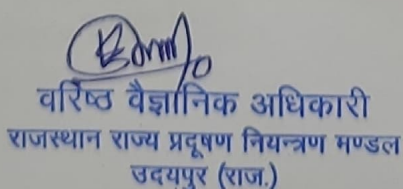 वरिष्ठ वैज्ञानिक अधिकारी
राजस्थान राज्य प्रदूषण नियन्त्रण मण्डल
उदयपुर (राज.)